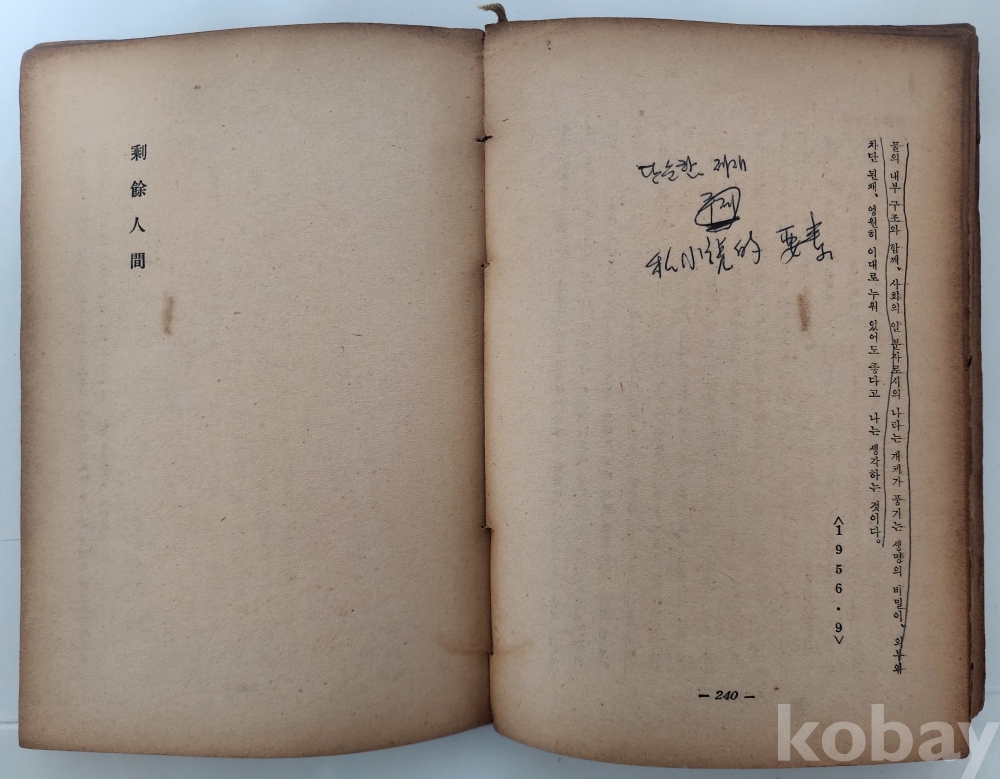 물의 내부 구조와 함께, 사회의 일 분자로서의 나라는 개체가 풍기는 생명의 비밀이, 외부와
차단 된채, 영원히 이대로 누워 있어도 좋다고 나는 생각하는 것이다.
<1956·9>
단순한 제재
주제
私小说的 要素
— 240 —
剩餘人間
kobay